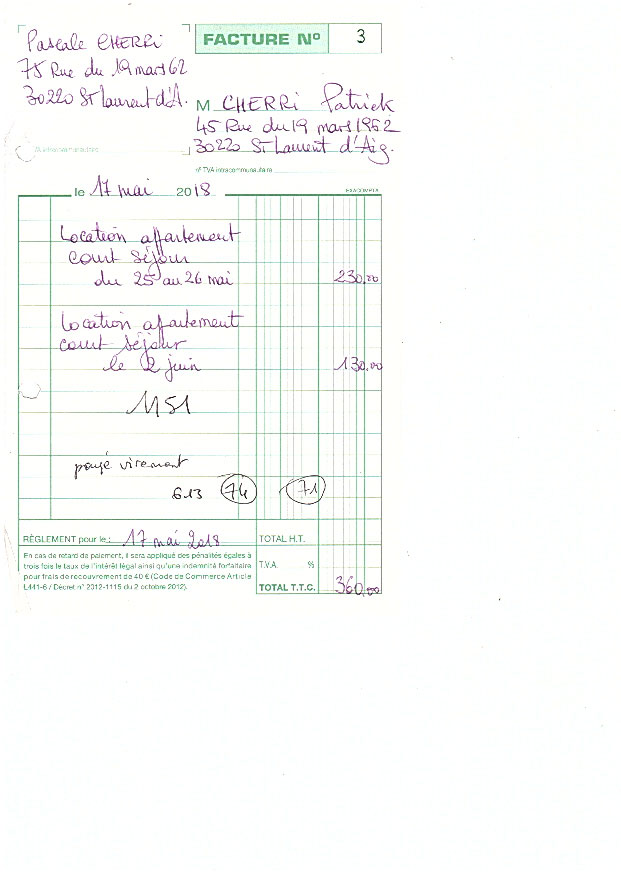 Pascale CHERRI
75 Rue du 19 mars 62
30220 St Laurent d'A.
FACTURE N° 3
M CHERRI Patrick
45 Rue du 19 mars 1962
30220 St Laurent d'Aig.
n° TVA intracommunautaire
le 17 mai 2018
EXACOMPTA
Location appartement
court séjour
du 25 au 26 mai 230,00
Location appartement
court séjour
le 2 juin 130.00
1151
payé virement
613 74 71
RÈGLEMENT pour le : 17 mai 2018
TOTAL H.T.
En cas de retard de paiement, il sera appliqué des pénalités égales à
trois fois le taux de l'intérêt légal ainsi qu'une indemnité forfaitaire
pour frais de recouvrement de 40 € (Code de Commerce Article
L441-6 / Décret n° 2012-1115 du 2 octobre 2012).
T.V.A. %
TOTAL T.T.C. 360,00